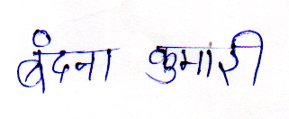 बंदना कुमारी